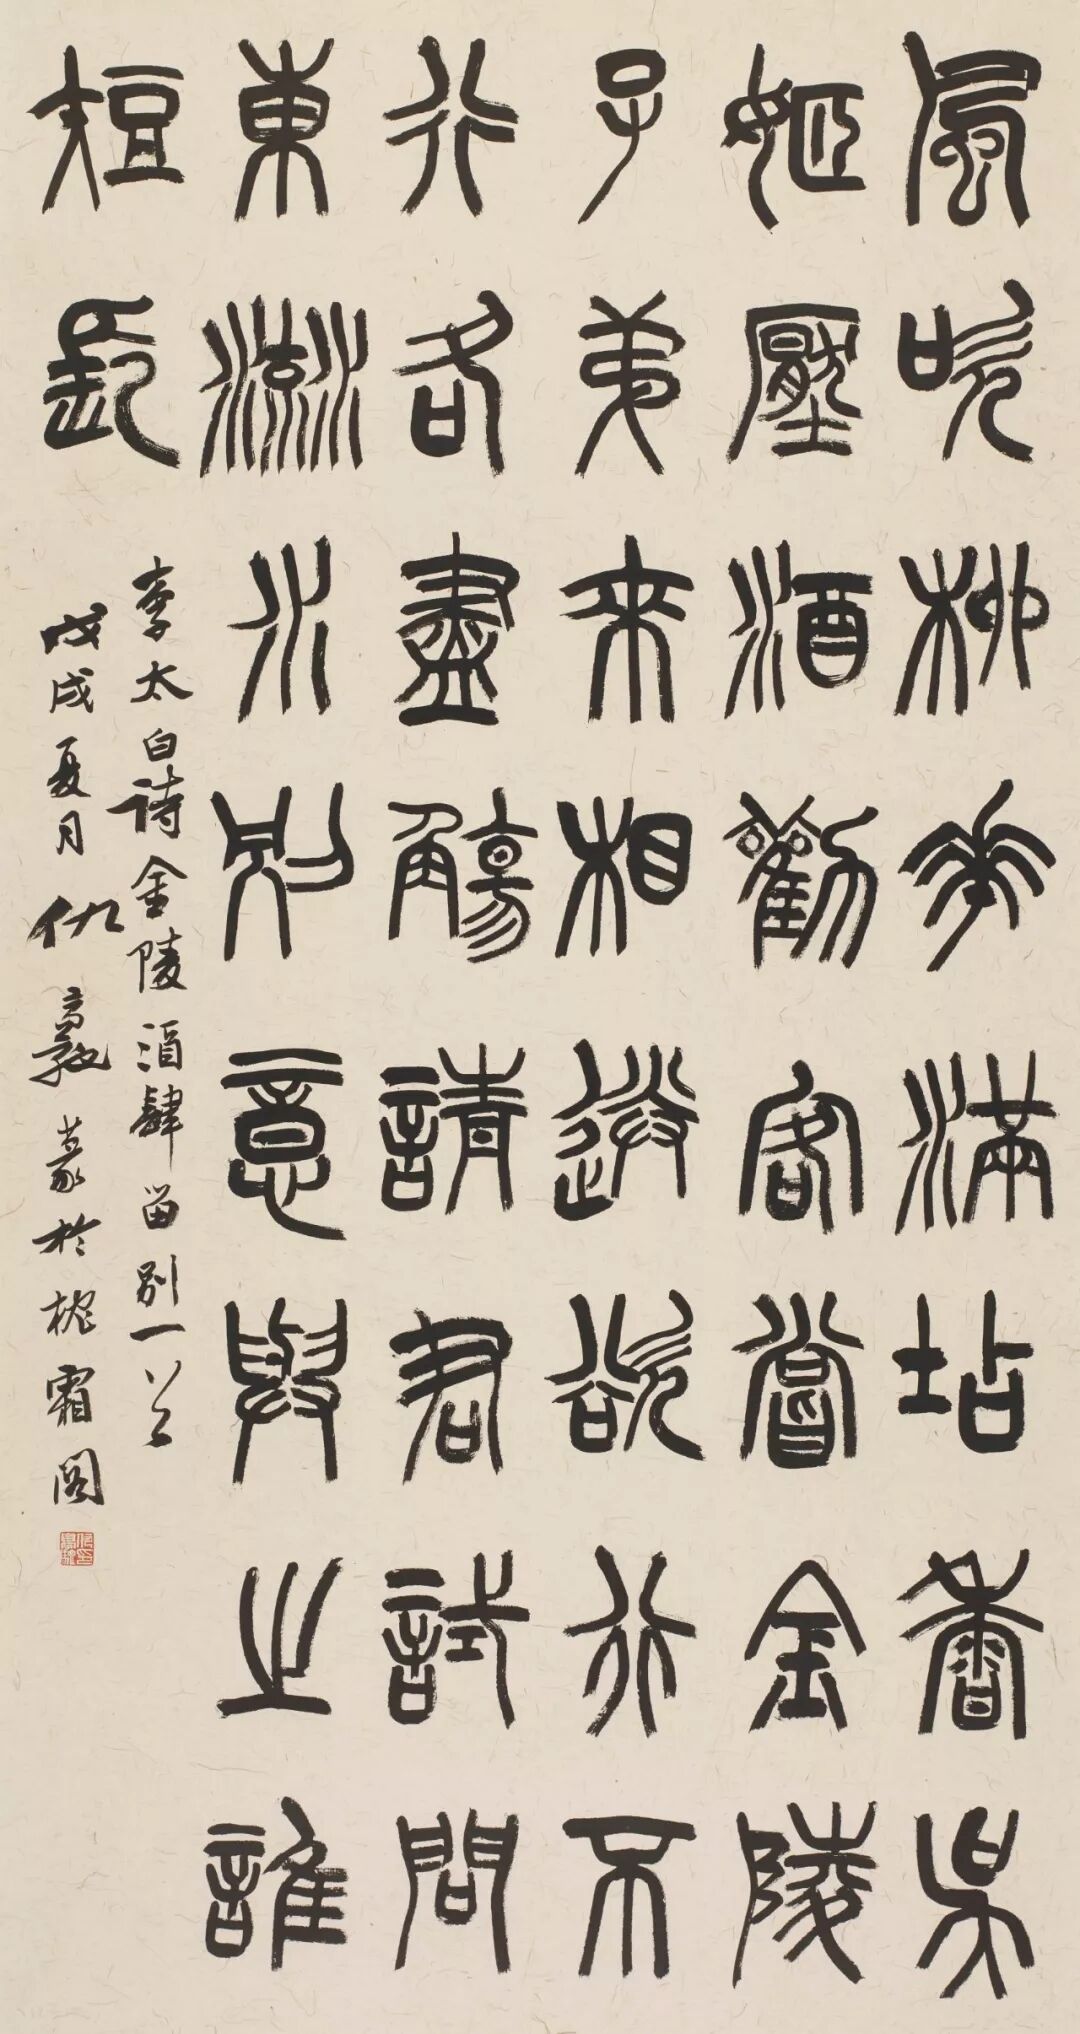 風吹柳花滿坫香吳
姬壓酒勸客嘗金陵
子弟來相送欲行不
行各盡觴請君試問
東流水別意與之誰
短長
李太白詩金陵酒肆留別一首
戊戌夏月仇高馭篆於槐霜閣